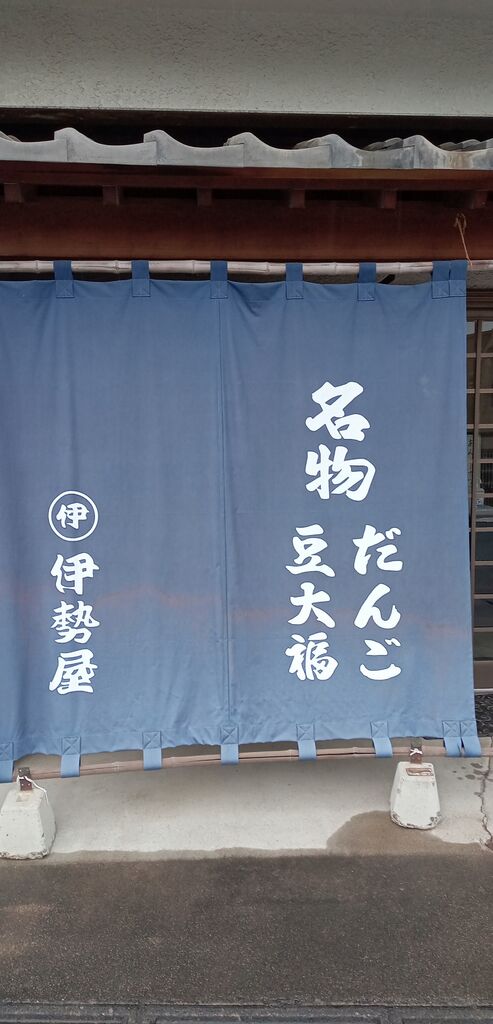 名物
だんご
豆大福
伊
伊勢屋